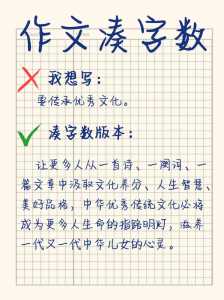 作文凑字数
我想写：
要传承优秀文化。
凑字数版本：
让更多人从一首诗、一阕词、一
篇文章中汲取文化养分、人生智慧、
美好品格，中华优秀传统文化必将
成为更多人生命的指路明灯，滋养
一代又一代中华儿女的心灵。